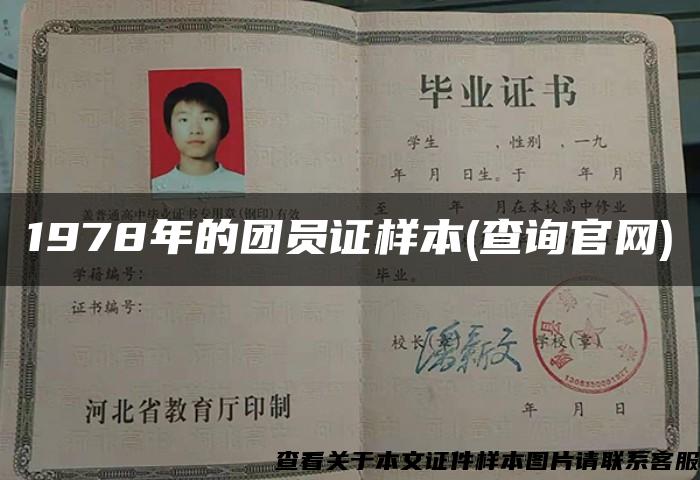 毕业证书
学生 ,性别 ,一九
年 月 日生。于 年 月
至 年 月在本校高中修业
盖普通高中毕业证书专用章(钢印)有效
1978年的团员证样本(查询官网)
学籍编号:
毕业。
证书编号:
校长(章) 学校(章)
河北省教育厅印制
年 月 日
查看关于本文证件样本图片请联系客服